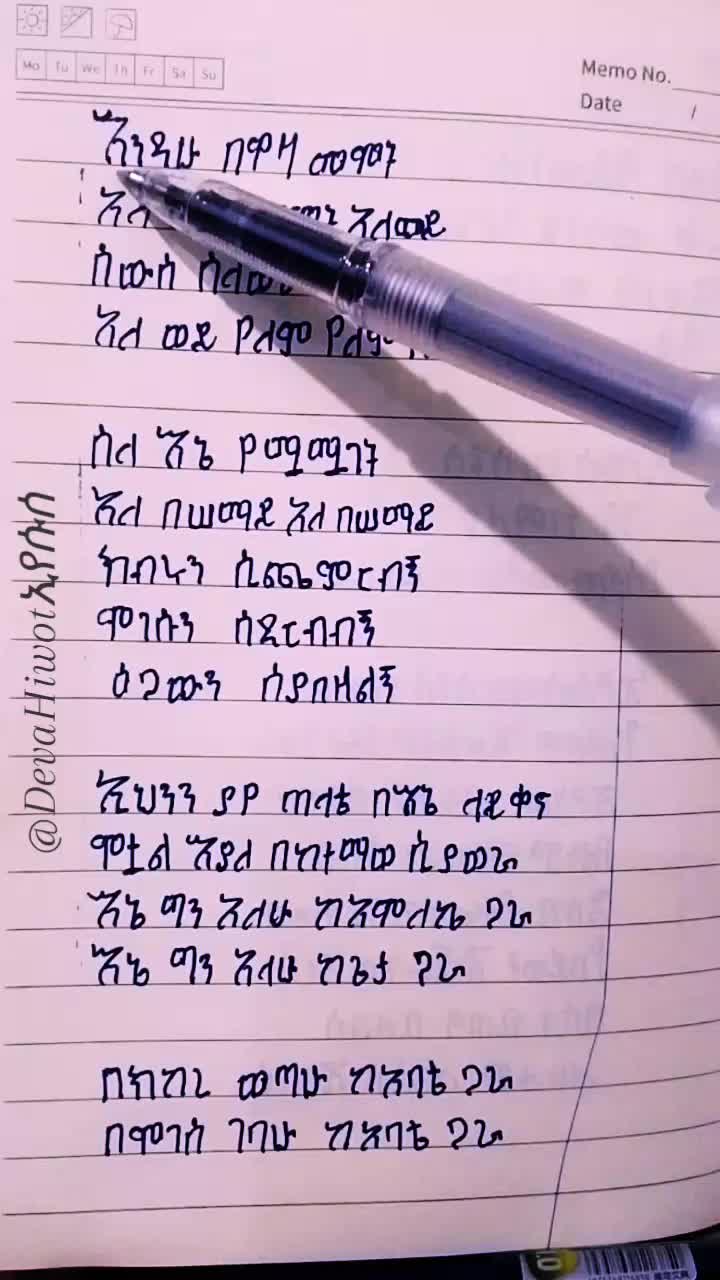 Mo Tu We Th Fr Sa Su
Memo No.
Date /
እንዳሁ በዋዛ መሞላት
አለወይ
ሰውስ
አለ ወይ የለም
ስለ እኔ የሚሟገት
አለ በሠማይ አለ በሠማይ
ክብሩን ሲጨምርብኝ
ሞገሱን ሲደርብብኝ
ዕጋውን ሲያበዛልኝ
ኢህንን ያየ ጠላቴ በእኔ ላይ ቀና
ሞቷል እያለ በከተማው ሲያወራ
እኔ ማን አለሁ ከአምላኬ ጋራ
እኔ ማን አለሁ ከጌታ ጋራ
በክብር ወጣሁ ከአባቴ ጋራ
በሞገስ ገባሁ ከአባቴ ጋራ
@DevaHiwotኢየሱስ